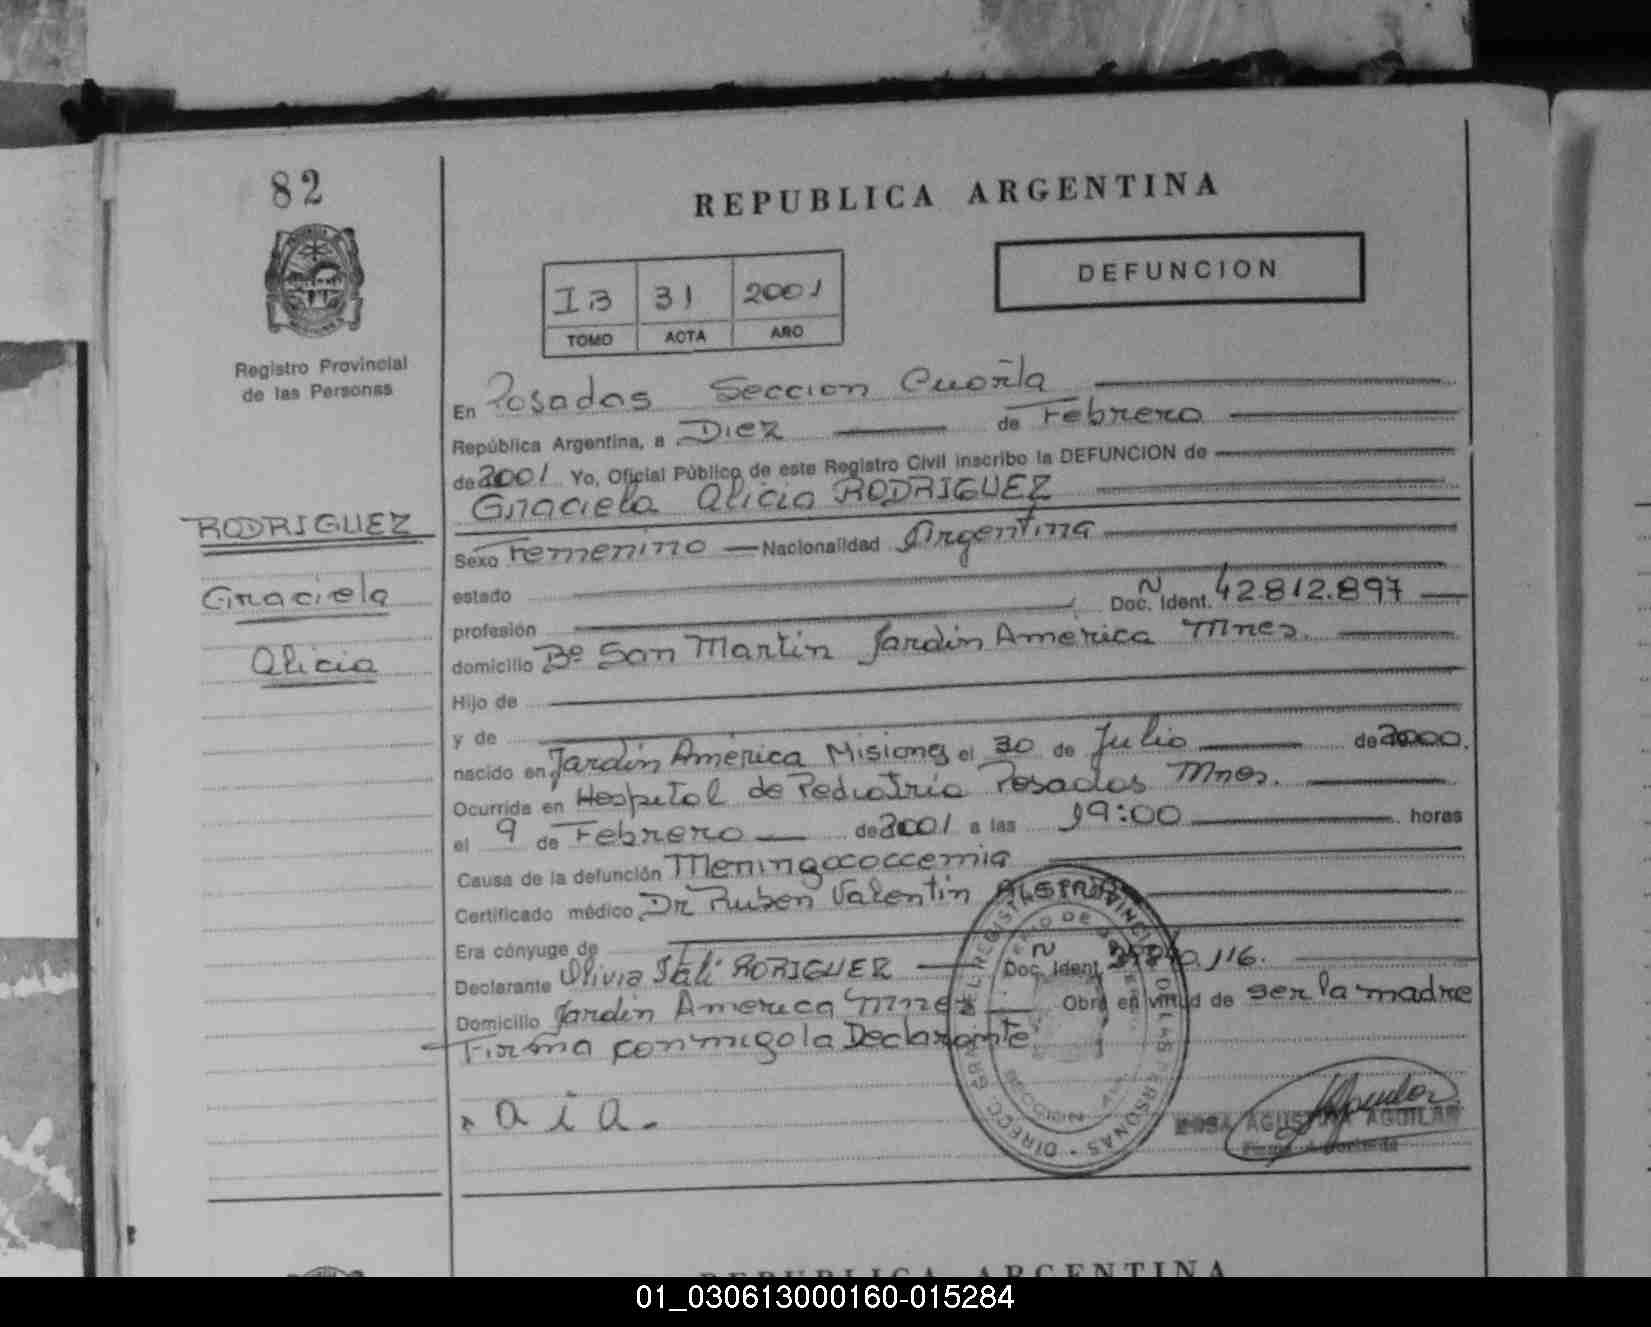 82
REPUBLICA ARGENTINA
DEFUNCION
IB 31 2001
TOMO ACTA AÑO
Registro Provincial
de las Personas
En Posadas Seccion Cuarta
República Argentina, a Diez de Febrero
de 2001 Yo, Oficial Público de este Registro Civil inscribo la DEFUNCION de
Graciela Alicia RODRIGUEZ
RODRIGUEZ
Graciela
Alicia
Sexo Femenino Nacionalidad Argentina
estado
profesión Doc. Ident. N 42.812.897
domicilio Bº San Martin Jardin America Mnes.
Hijo de
y de
nacido en Jardin América Misiones el 30 de Julio de 2000.
Ocurrida en Hospital de Pediatria Posadas Mnes.
el 9 de Febrero de 2001 a las 19:00 horas
Causa de la defunción Meningococcemia
Certificado médico Dr Ruben Valentin
Era cónyuge de
Declarante Olivia RORIGUEZ Doc. Ident. N
Domicilio Jardin America Mnes Obra en virtud de ser la madre
Firma conmigo la Declarante
a i a.
AGUILAR
REPUBLICA ARGENTINA
01_030613000160-015284